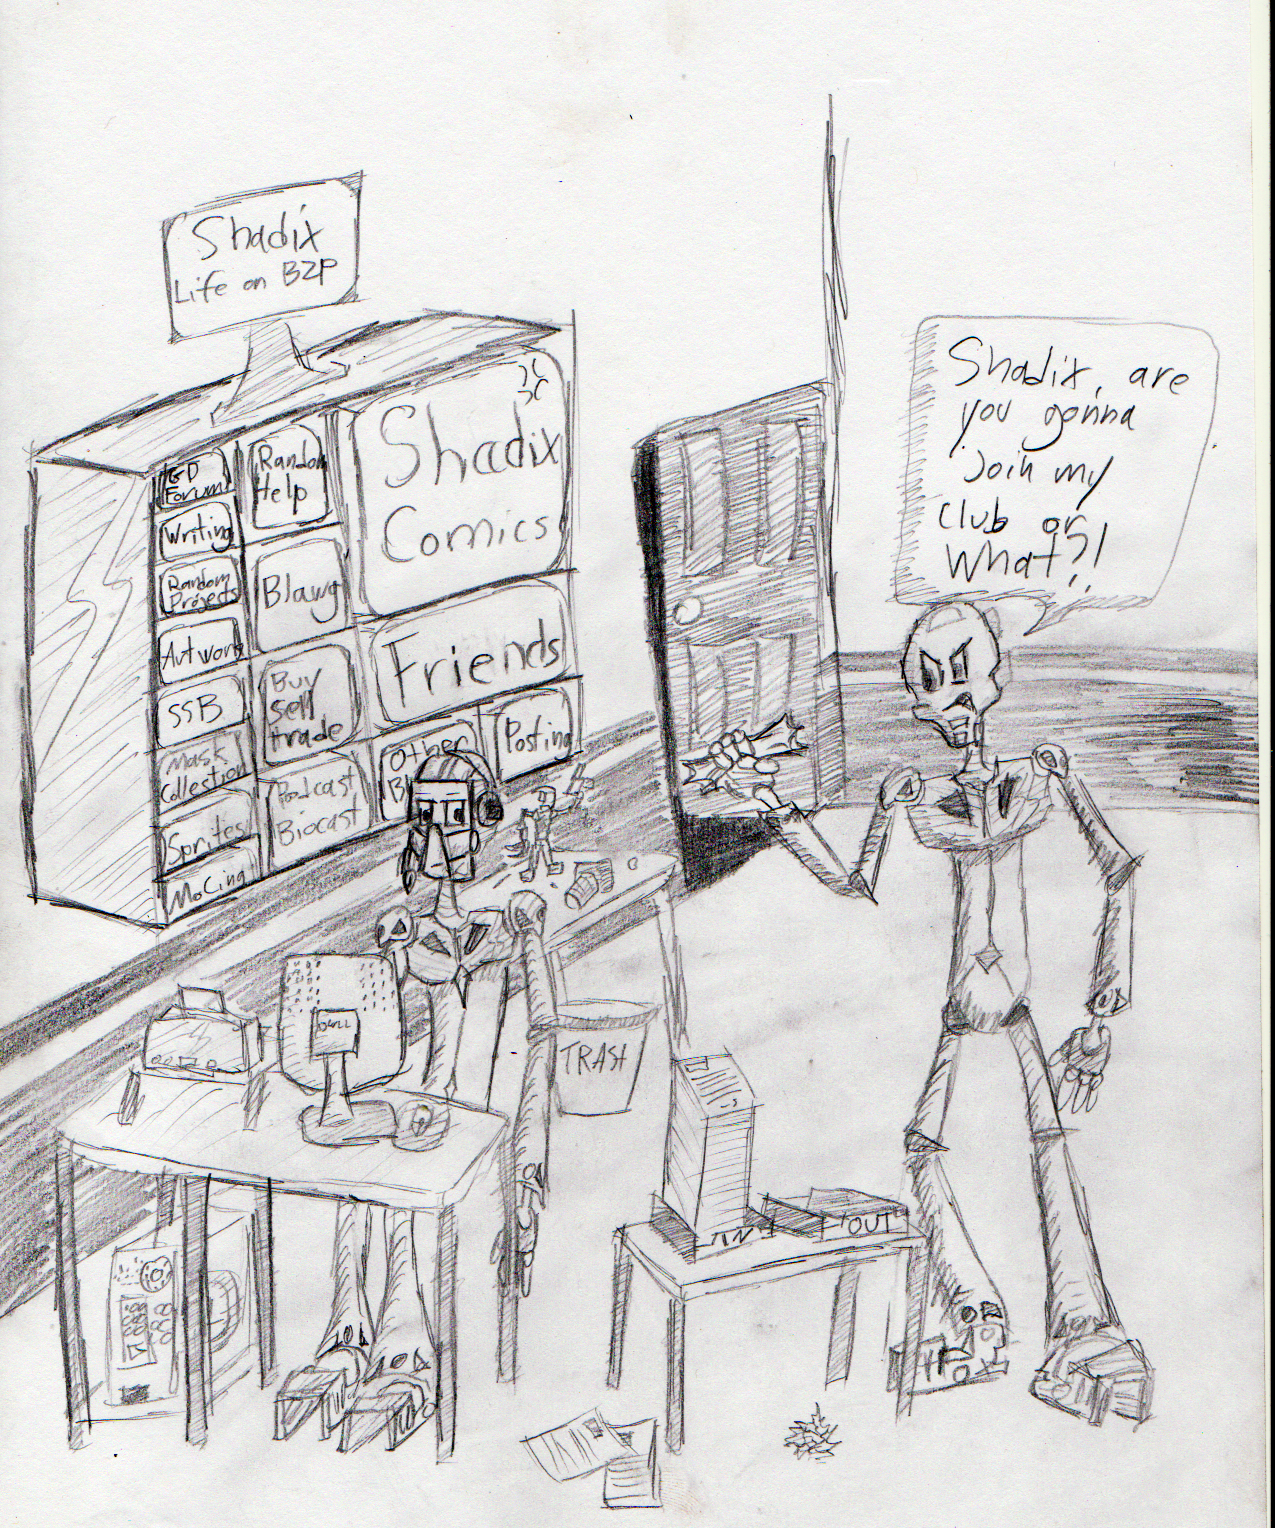 Shadix
Life on BZP
GD
Forum
Writing
Random
Projects
Artwork
SSB
Mask
Collection
Sprites
MoCing
Random
Help
Blawg
Buy
Sell
trade
Podcast
Biocast
Shadix
Comics
Friends
Other
Posting
Shadix, are
you gonna
Join my
club or
What?!
TRASH
DELL
IN
OUT